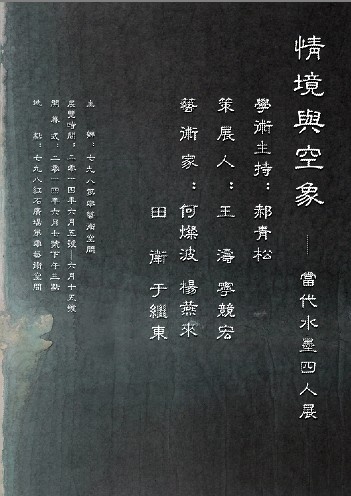 情境與空象
——當代水墨四人展
學術主持：郝青松
策展人：王濤 寧競宏
藝術家：何燦波 楊燕來
田衛 于繼東
主 辦：七九八藝術空間
展覽時間：二零一四年六月五號—六月十五號
開幕式：二零一四年六月七號下午三點
地 點：七九八紅石廣場 藝術空間